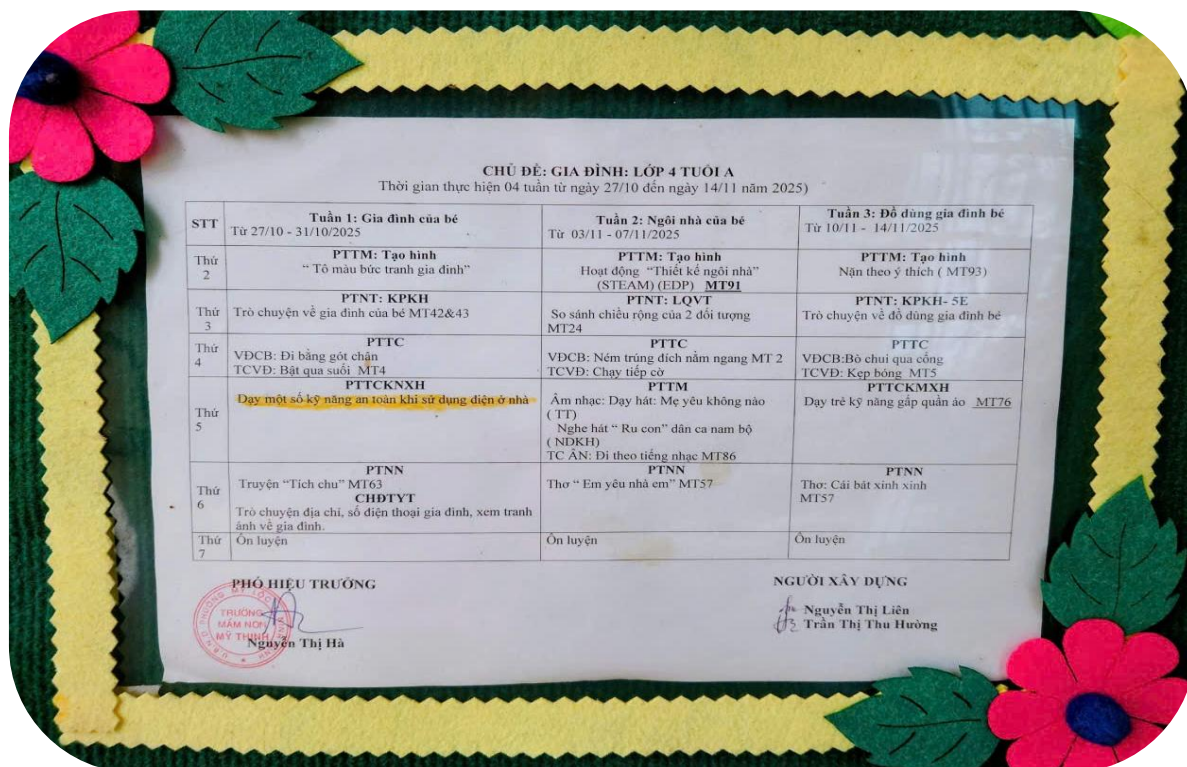 CHỦ ĐỀ: GIA ĐÌNH: LỚP 4 TUỔI A
Thời gian thực hiện 04 tuần từ ngày 27/10 đến ngày 14/11 năm 2025)
STT
Tuần 1: Gia đình của bé
Từ 27/10 - 31/10/2025
Tuần 2: Ngôi nhà của bé
Từ 03/11 - 07/11/2025
Tuần 3: Đồ dùng gia đình bé
Từ 10/11 - 14/11/2025
Thứ
2
PTTM: Tạo hình
“ Tô màu bức tranh gia đình”
PTTM: Tạo hình
Hoạt động “Thiết kế ngôi nhà”
(STEAM) (EDP) MT91
PTTM: Tạo hình
Nặn theo ý thích ( MT93)
Thứ
3
PTNT: KPKH
Trò chuyện về gia đình của bé MT42&43
PTNT: LQVT
So sánh chiều rộng của 2 đối tượng
MT24
PTNT: KPKH- 5E
Trò chuyện về đồ dùng gia đình bé
Thứ
4
PTTC
VĐCB: Đi bằng gót chân
TCVĐ: Bật qua suối MT4
PTTC
VĐCB: Ném trúng đích nằm ngang MT 2
TCVĐ: Chạy tiếp cờ
PTTC
VĐCB:Bò chui qua cổng
TCVĐ: Kẹp bóng MT5
Thứ
5
PTTCKNXH
Dạy một số kỹ năng an toàn khi sử dụng điện ở nhà
PTTM
Âm nhạc: Dạy hát: Mẹ yêu không nào
( TT)
Nghe hát “ Ru con” dân ca nam bộ
( NDKH)
TC ÂN: Đi theo tiếng nhạc MT86
PTTCKMXH
Dạy trẻ kỹ năng gấp quần áo MT76
Thứ
6
PTNN
Truyện “Tích chu” MT63
CHĐTYT
Trò chuyện địa chỉ, số điện thoại gia đình, xem tranh
ảnh về gia đình.
PTNN
Thơ “ Em yêu nhà em” MT57
PTNN
Thơ: Cái bát xinh xinh
MT57
Thứ
7
Ôn luyện
Ôn luyện
Ôn luyện
PHÓ HIỆU TRƯỞNG
TRƯỜNG
MẦM NON
MỸ THỊNH
Nguyễn Thị Hà
NGƯỜI XÂY DỰNG
Nguyễn Thị Liên
Trần Thị Thu Hường